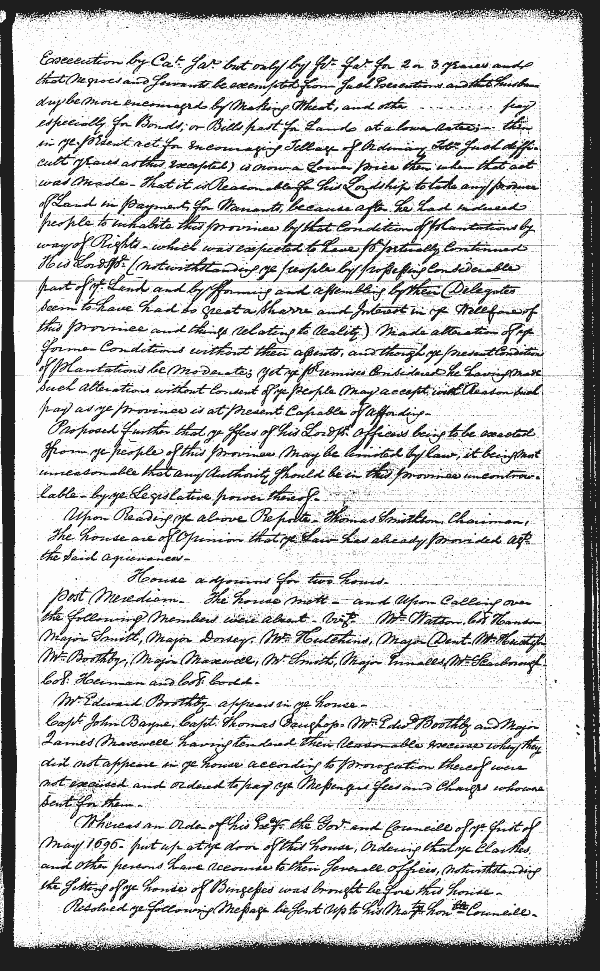 Execcution by Ca: Sa: but only by fi: fa: for 2 or 3 yeares and
that Negroes and Servants be exempted from such Executions and that husban
dry be more encouraged by Making Wheat, and othe ......... pay
especially for Bonds, or Bills past for Land at a lower rates; - then
in ye psent act for encouraging Tillage of Ordering Tob: Such diffi-
cult yeares as this excepted) is now a Lower price then when that act
was Made - That it is Reasonable for his Lordship to take any produce
of Land in payment for Warrants, because after he had induced
people to inhabite this province by that Condition of plantations by
way of Rights - which was expected to have ppetually Continued
His Lordsp: (notwithstanding ye people by possessing Considerable
part of ye Land and by fforming and assembling by their Delegates
Seem to have had so great a Sharre and Interest in ye Wellfare of
this province and things relating to reality) Made alteration of ye
former Conditions without their assents, and though ye present Condition
of plantations be Moderate; yet ye pmises Considered he having made
such alterations without Consent of ye people May accept with Reason such
pay as ye province is at present Capable of affording -
Proposed further that ye ffees of his Lordsp: officers being to be exacted
from ye people of this Province May be limited by law, it being most
unreasonable that any Authority should be in this province uncontrou-
lable - by ye Legislative power thereof -
Upon Reading ye above Reporte - Thomas Smithson Chairman,
The house are of Opinion that ye Law has already provided agt:
the Said agrievances -
House adjourns for two hours.
Post Meredium - The house mett - and Upon Calling over
the following Members were absent - vizt: Mr Watson, Col: Hanson
Major Smith, Major Dorsey, Mr Hutchins, Major Dent, Mr
Mr Boothby, Major Maxwell, Mr Smith, Major Ennalls, Mr Scarborough
Col: Herman and Col: Codd -
Mr Edward Boothby appears in ye house -
Capt John Bayne, Capt: Thomas Mr Edwd Boothby and Major
James Maxwell having tendred their reasonable excuse why they
did not appear in ye house according to prorogation thereof were
not excused and ordered to pay ye Messengers fees and Charges who were
Sent for them -
Whereas an Order of his Exy: the Govr and Councill of ye first of
May 1696 - put up at ye door of this house, Ordering that ye Clarkes,
and other persons have recourse to their Severall offices, notwithstanding
the Sitting of ye house of Burgesses was brought before this house -
Resolved ye following Message be Sent Up to his Matys honble Councill -